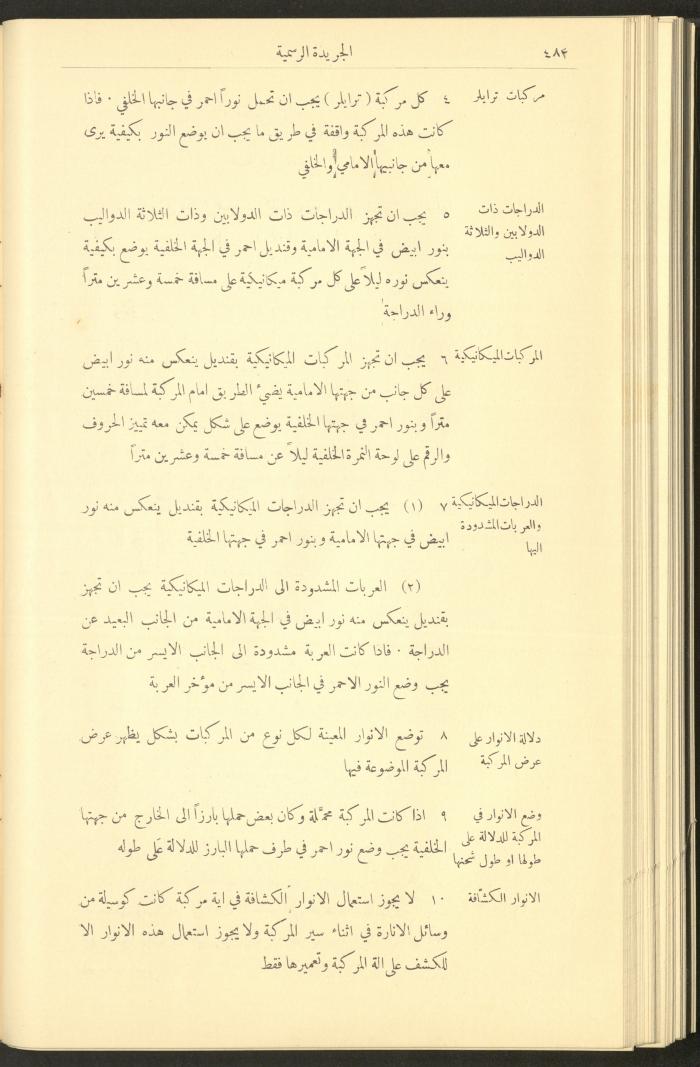 ٤٨٢
الجريدة الرسمية
مركبات ترايلر
٤ كل مركبة (ترايلر) يجب ان تحمل نوراً احمر في جانبها الخلفي . فاذا
كانت هذه المركبة واقفة في طريق ما يجب ان يوضع النور بكيفية يرى
معها من جانبيها الامامي والخلفي
الدراجات ذات
الدولابين والثلاثة
الدواليب
٥ يجب ان تجهز الدراجات ذات الدولابين وذات الثلاثة الدواليب
بنور ابيض في الجهة الامامية وقنديل احمر في الجهة الخلفية يوضع بكيفية
ينعكس نوره ليلاً على كل مركبة ميكانيكية على مسافة خمسة وعشرين متراً
وراء الدراجة
المركبات الميكانيكية
٦ يجب ان تجهز المركبات الميكانيكية بقنديل ينعكس منه نور ابيض
على كل جانب من جهتها الامامية يضيء الطريق امام المركبة لمسافة خمسين
متراً وبنور احمر في جهتها الخلفية يوضع على شكل يمكن معه تمييز الحروف
والرقم على لوحة النمرة الخلفية ليلاً عن مسافة خمسة وعشرين متراً
الدراجات الميكانيكية
والعربات المشدودة
اليها
٧ (١) يجب ان تجهز الدراجات الميكانيكية بقنديل ينعكس منه نور
ابيض في جهتها الامامية وبنور احمر في جهتها الخلفية
(٢) العربات المشدودة الى الدراجات الميكانيكية يجب ان تجهز
بقنديل ينعكس منه نور ابيض في الجهة الامامية من الجانب البعيد عن
الدراجة . فاذا كانت العربة مشدودة الى الجانب الايسر من الدراجة
يجب وضع النور الاحمر في الجانب الايسر من مؤخر العربة
دلالة الانوار على
عرض المركبة
٨ توضع الانوار المعينة لكل نوع من المركبات بشكل يظهر عرض
المركبة الموضوعة فيها
وضع الانوار في
المركبة للدلالة على
طولها او طول شحنها
٩ اذا كانت المركبة محمّلة وكان بعض حملها بارزاً الى الخارج من جهتها
الخلفية يجب وضع نور احمر في طرف حملها البارز للدلالة على طوله
الانوار الكشّافة
١٠ لا يجوز استعمال الانوار الكشافة في اية مركبة كانت كوسيلة من
وسائل الانارة في اثناء سير المركبة ولا يجوز استعمال هذه الانوار الا
للكشف على الة المركبة وتعميرها فقط